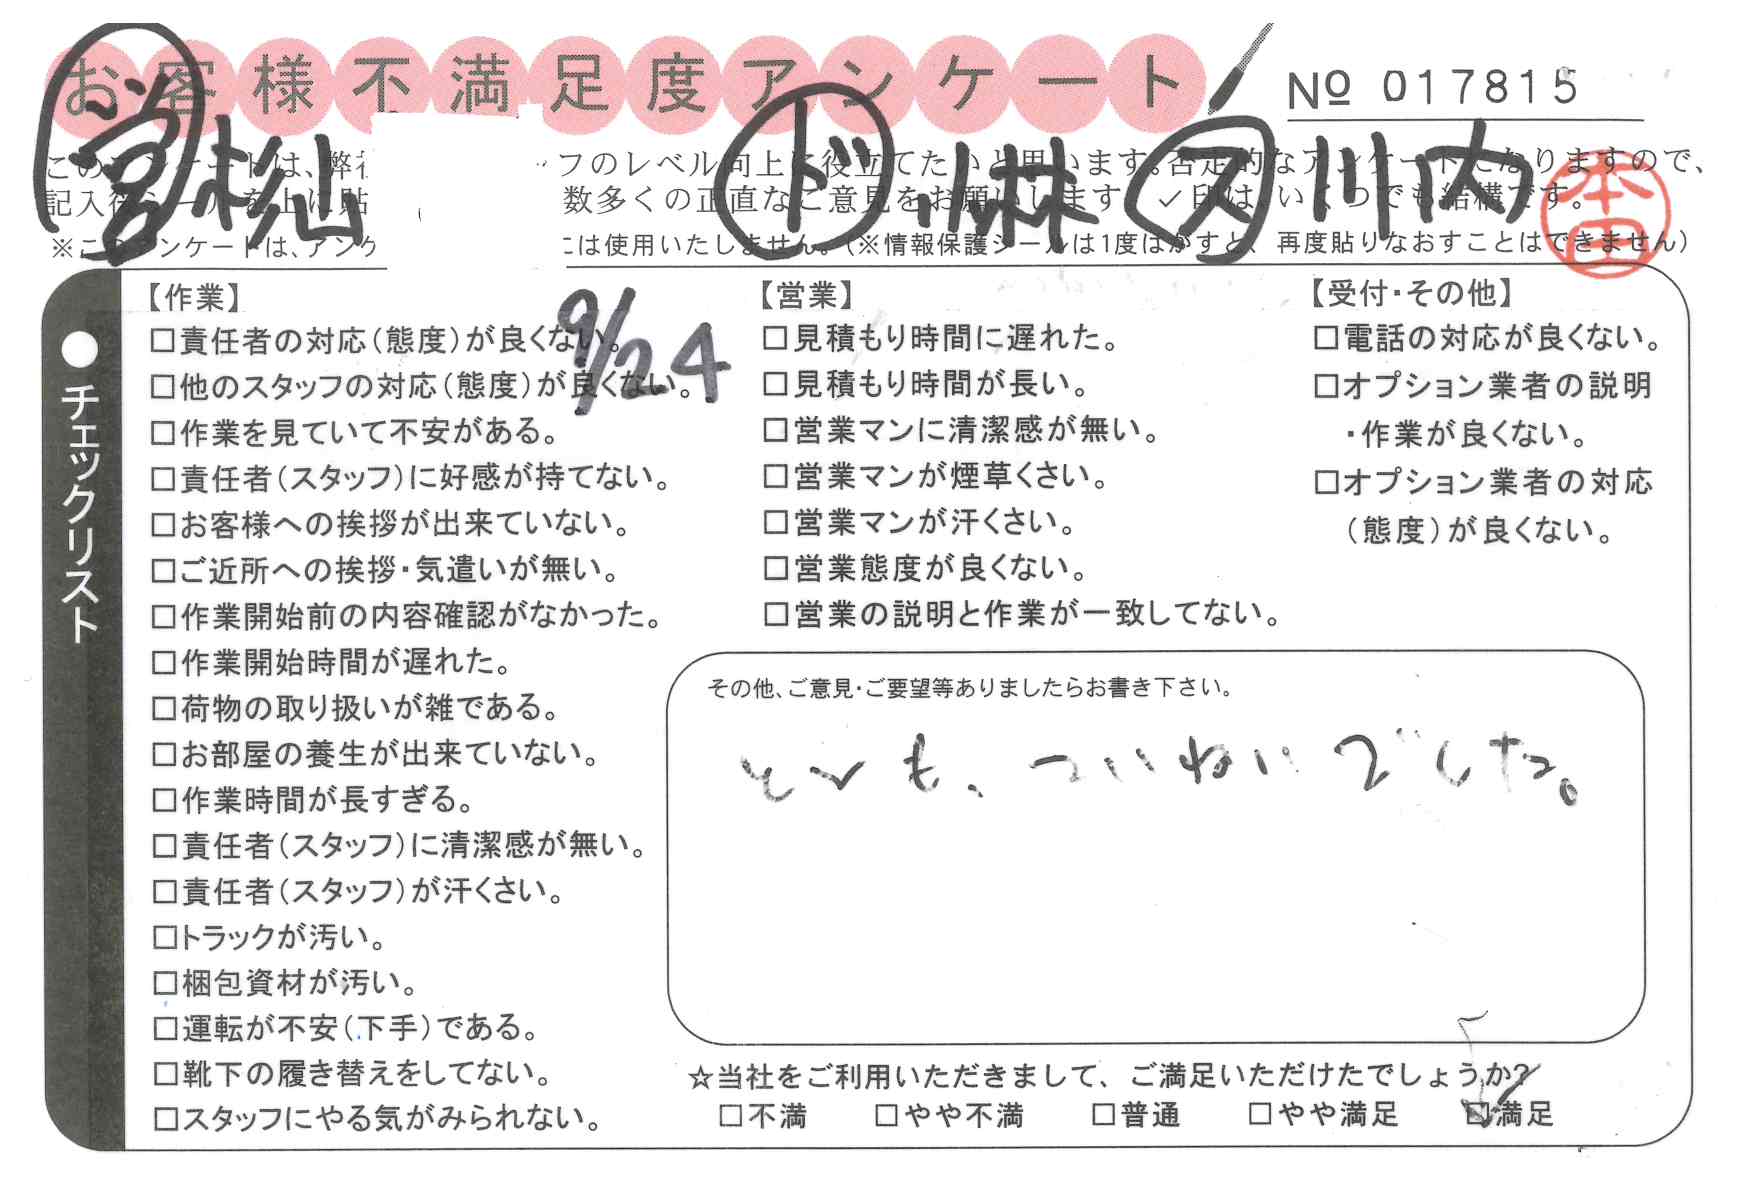 お客様不満足度アンケート
№ 017815
営 松山 ド 小林 ス 川内
本田
このアンケートは、弊社 ッフのレベル向上に役立てたいと思います。否定的なアンケートになりますので、
記入後シールを上に貼 数多くの正直なご意見をお願いします。✓印は、いくつでも結構です。
※このアンケートは、アンケ には使用いたしません。(※情報保護シールは1度はがすと、再度貼りなおすことはできません)
9/24
●チェックリスト
【作業】
□責任者の対応(態度)が良くない。
□他のスタッフの対応(態度)が良くない。
□作業を見ていて不安がある。
□責任者(スタッフ)に好感が持てない。
□お客様への挨拶が出来ていない。
□ご近所への挨拶・気遣いが無い。
□作業開始前の内容確認がなかった。
□作業開始時間が遅れた。
□荷物の取り扱いが雑である。
□お部屋の養生が出来ていない。
□作業時間が長すぎる。
□責任者(スタッフ)に清潔感が無い。
□責任者(スタッフ)が汗くさい。
□トラックが汚い。
□梱包資材が汚い。
□運転が不安(下手)である。
□靴下の履き替えをしてない。
□スタッフにやる気がみられない。
【営業】
□見積もり時間に遅れた。
□見積もり時間が長い。
□営業マンに清潔感が無い。
□営業マンが煙草くさい。
□営業マンが汗くさい。
□営業態度が良くない。
□営業の説明と作業が一致してない。
【受付・その他】
□電話の対応が良くない。
□オプション業者の説明
・作業が良くない。
□オプション業者の対応
(態度)が良くない。
その他、ご意見・ご要望等ありましたらお書き下さい。
とても、ていねいでした。
☆当社をご利用いただきまして、ご満足いただけたでしょうか?
□不満 □やや不満 □普通 □やや満足 ☑満足